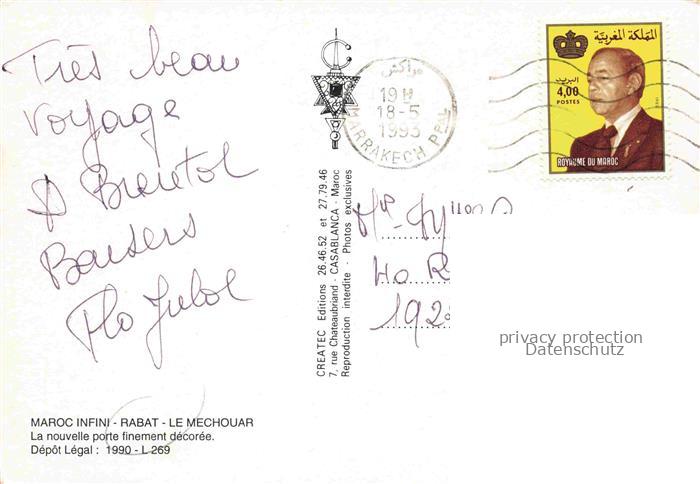 Très beau
voyage
A Brentol
Baisers
Flo Jubol
MAROC INFINI - RABAT - LE MECHOUAR
La nouvelle porte finement décorée.
Dépôt Légal : 1990 - L 269
CREATEC Editions 26.46.52 et 27.79.46
7, rue Chateaubriand - CASABLANCA - Maroc
Reproduction interdite - Photos exclusives
مراكش
19H
18-5
1993
MARRAKECH PPAL
المملكة المغربية
البريد
4,00
POSTES
ROYAUME DU MAROC
192
privacy protection
Datenschutz